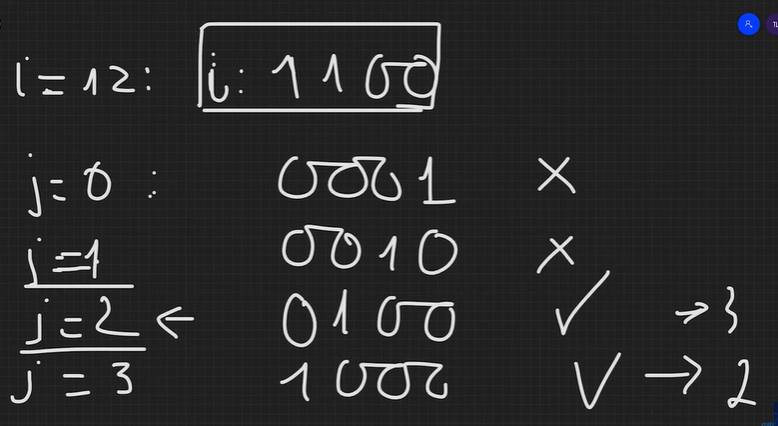 i=12: i: 1100
j=0: 0001 ×
j=1 0010 ×
j=2 ← 0100 ✓ → 3
j=3 1000 ✓ → 2